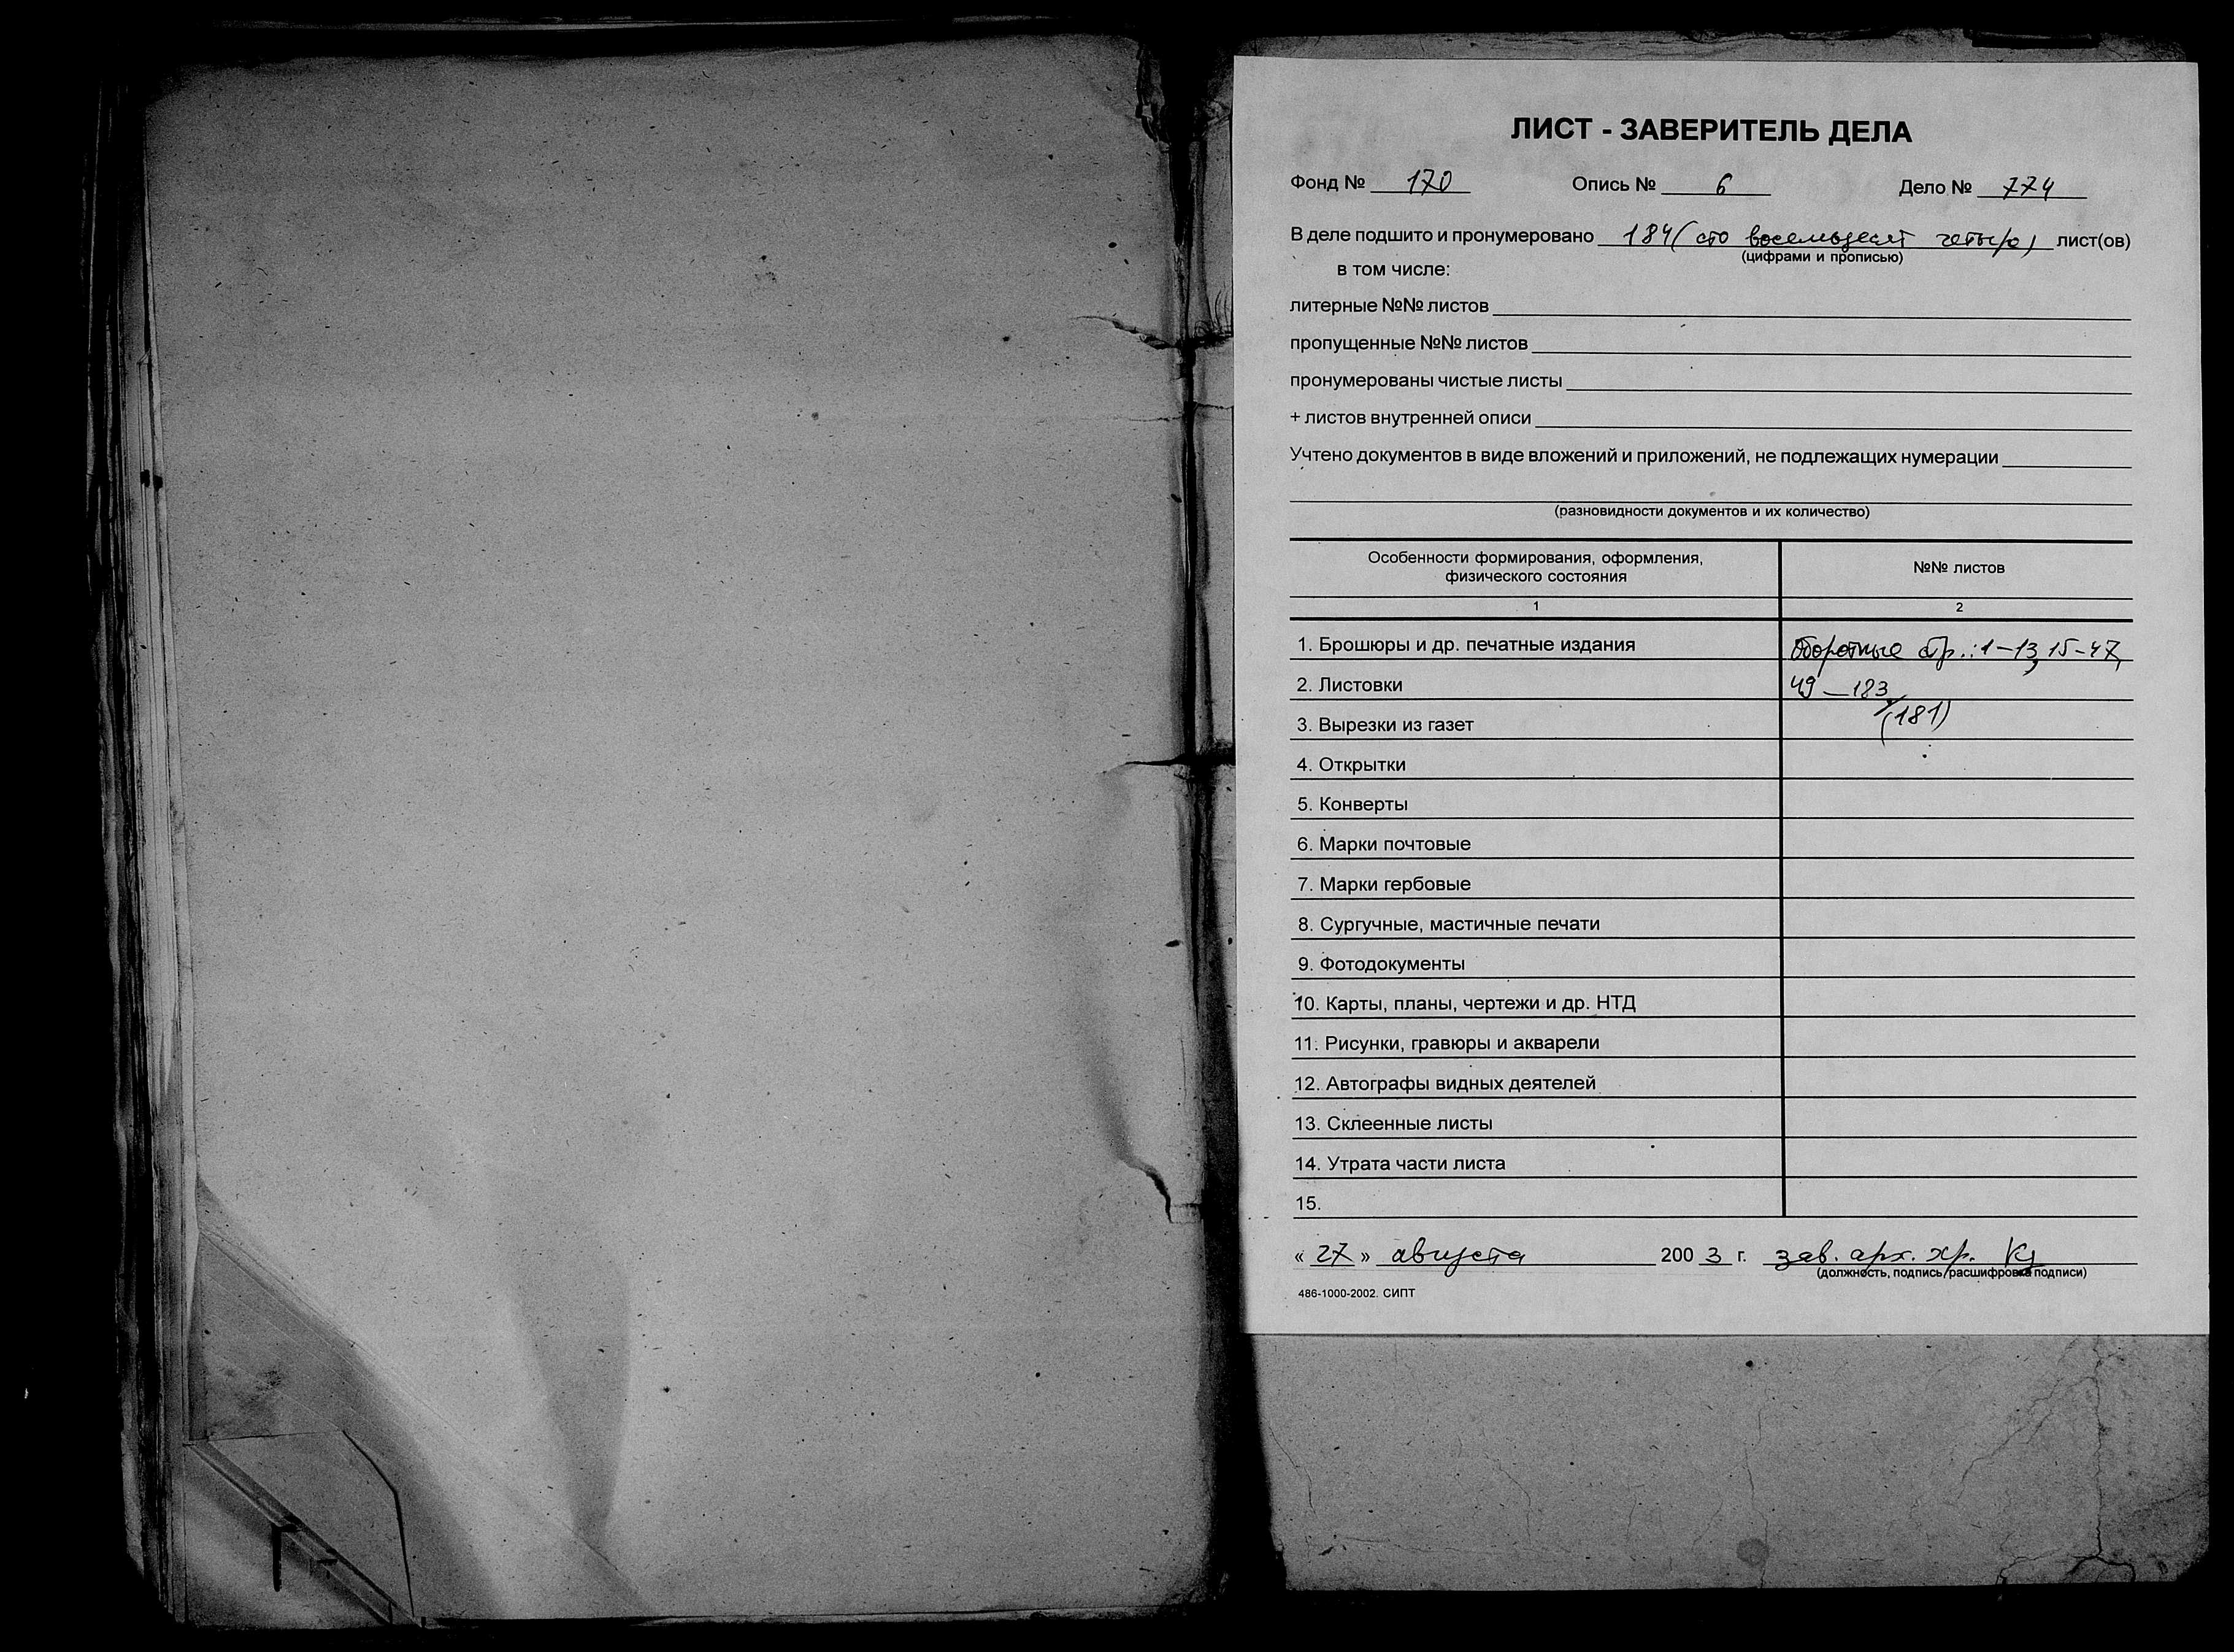 ЛИСТ - ЗАВЕРИТЕЛЬ ДЕЛА
Фонд № 170 Опись № 6 Дело № 774
В деле подшито и пронумеровано 184 (сто восемьдесят четыре) лист(ов)
(цифрами и прописью)
в том числе:
литерные №№ листов
пропущенные №№ листов
пронумерованы чистые листы
+ листов внутренней описи
Учтено документов в виде вложений и приложений, не подлежащих нумерации
(разновидности документов и их количество)
Особенности формирования, оформления, физического состояния №№ листов
1 2
1. Брошюры и др. печатные издания Оборотные стр.: 1-13, 15-47,
2. Листовки 49-183
3. Вырезки из газет (181)
4. Открытки
5. Конверты
6. Марки почтовые
7. Марки гербовые
8. Сургучные, мастичные печати
9. Фотодокументы
10. Карты, планы, чертежи и др. НТД
11. Рисунки, гравюры и акварели
12. Автографы видных деятелей
13. Склеенные листы
14. Утрата части листа
15.
« 27 » августа 2003 г. зав. арх. хр.
(должность, подпись, расшифровка подписи)
486-1000-2002. СИПТ